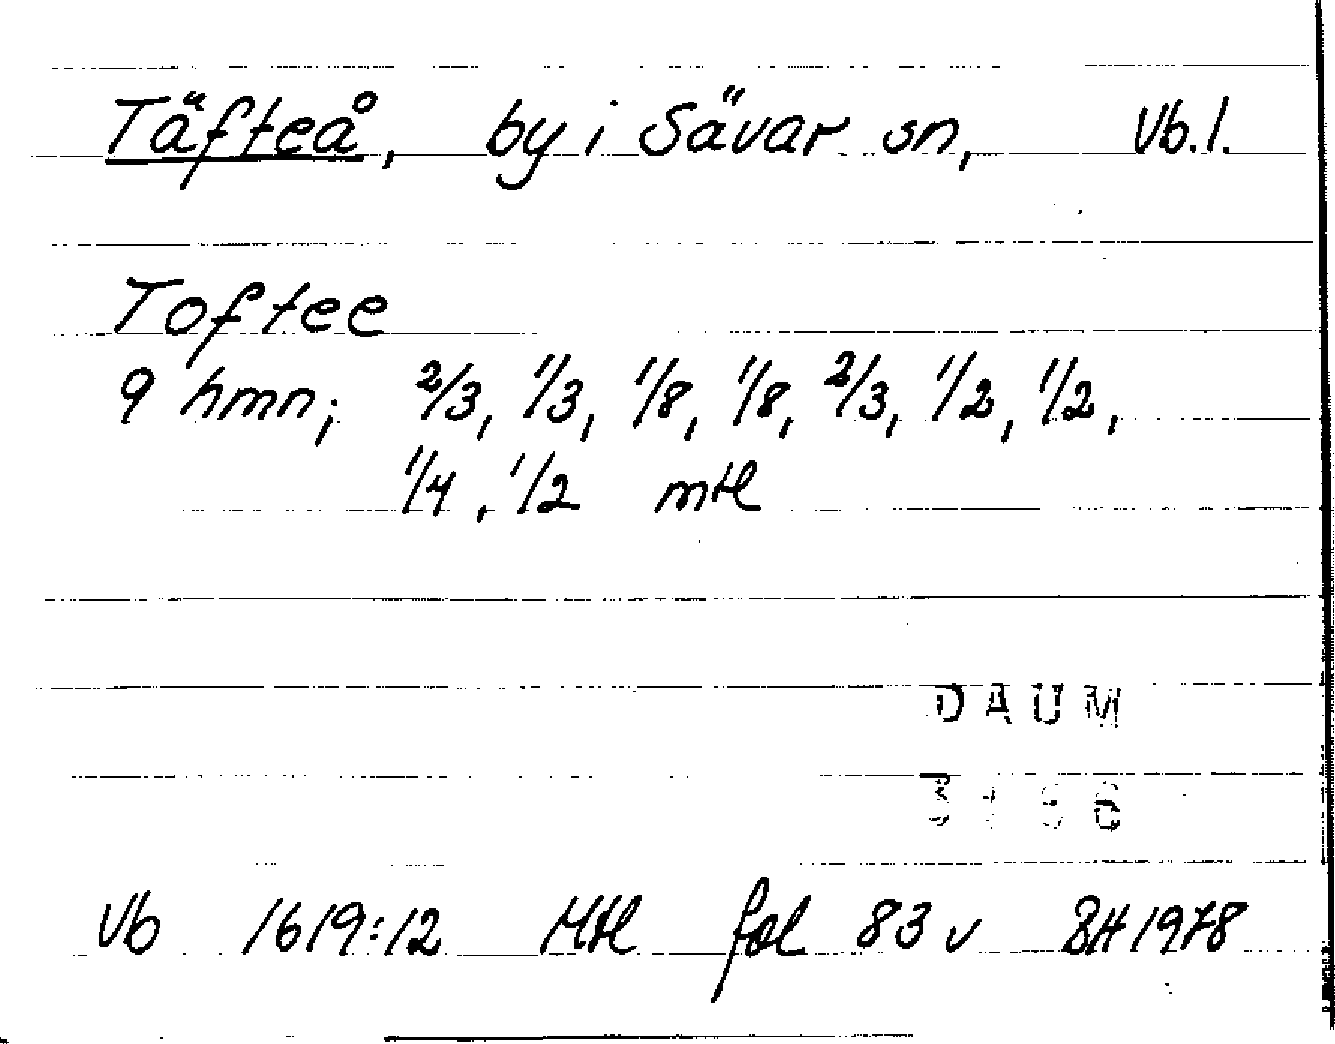 Täfteå, by i Sävar sn, Vb.l.
Toftee
9 hmn; 2/3, 1/3, 1/8, 1/8, 2/3, 1/2, 1/2,
1/4, 1/2 mtl
DAUM
Vb 1619:12 Mtl fol 83 v BH 1978